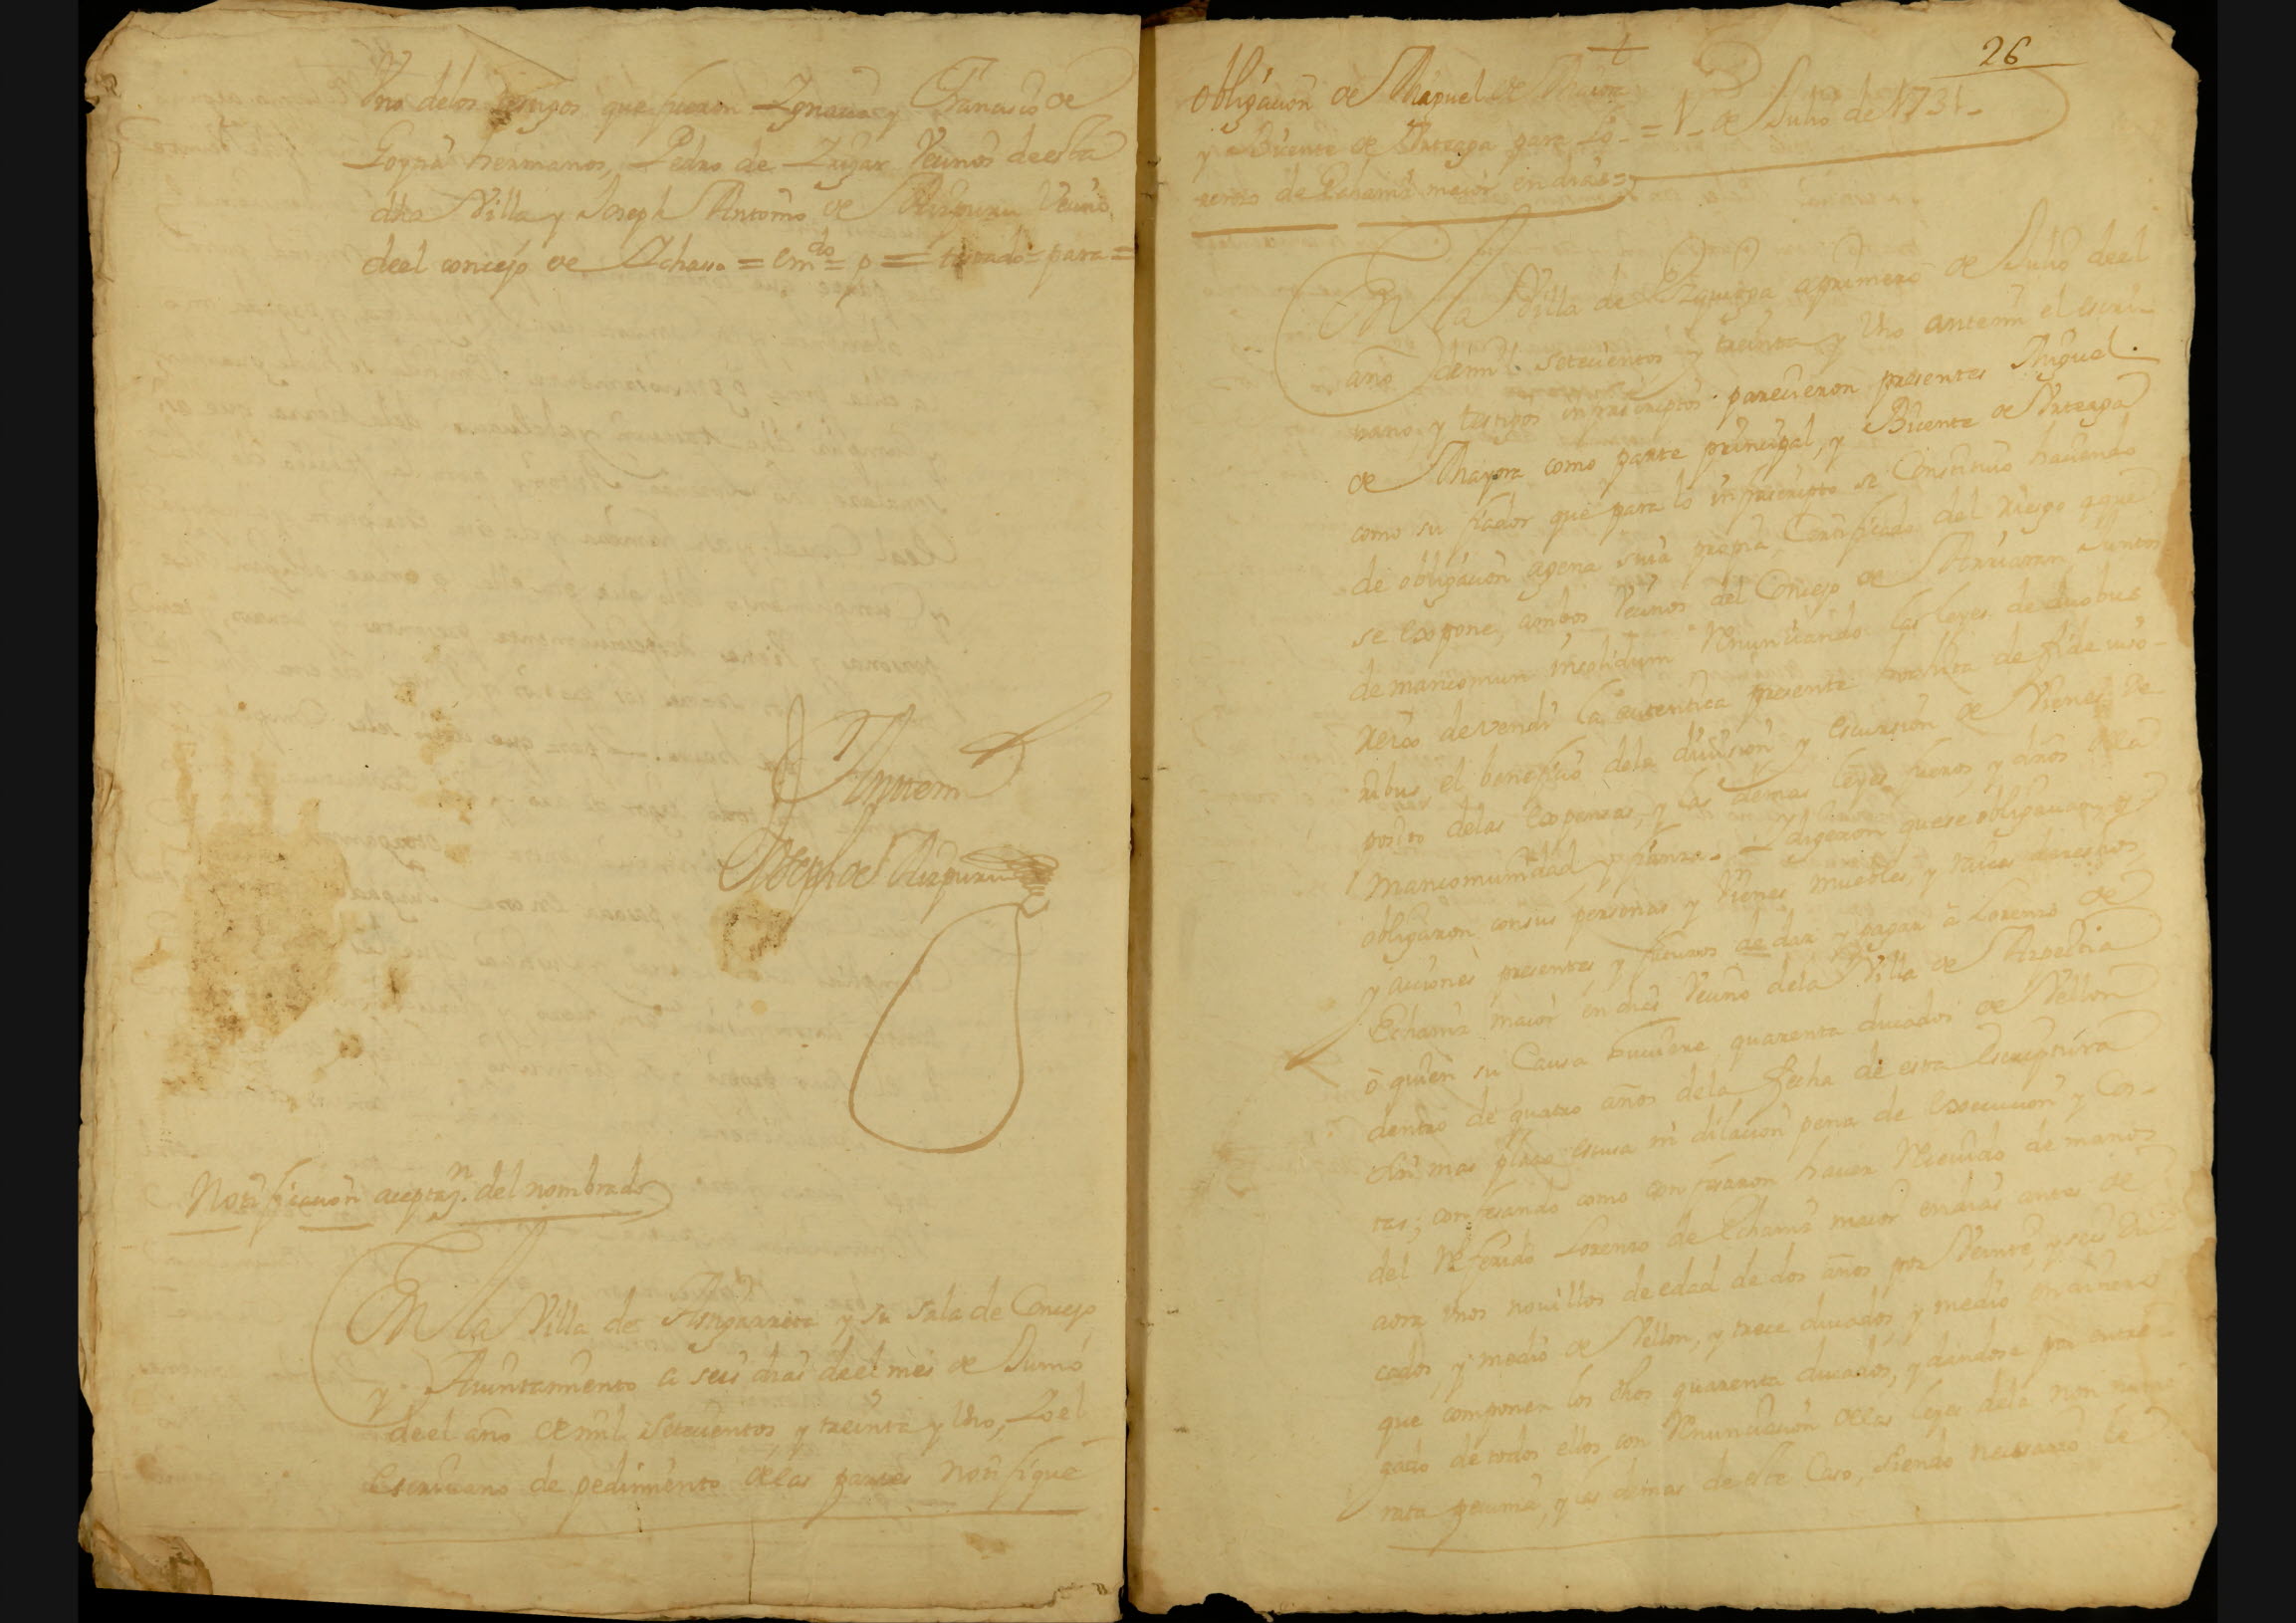 Vno delos testigos que fueron Ygnacio y Francisco de
Goyna hermanos, Pedro de Zugar Vecinos deesta
dha Villa y Joseph Antonio de Aizpuru Vecino
deel concejo de = em.do = o = testado = para =
Antemi
Joseph de Aizpuru
Notificacion aceptaz.n del nombrado
En la Villa de Asngarreta y su sala de Concejo
y Aiuntamiento a seis dias deel mes de Junio
deel año de mil setecientos y treinta y Uno, Yo el
Escriuano de pedimiento delas partes notifique
26
Obligacion de Miguel de Maiora
y Bicente de Arteaga para Lo- = 1- de Julio de 1731-
renzo de Echaniz mayor en dias =
En la Villa de Ezquioga a primero de Julio deel
año de mil setecientos y treinta y Uno antemi el escri-
uano, y testigos infrascriptos parecieron presentes Miguel
de Mayora como parte principal, y Bicente de Arteaga
como su fiador que para lo infrascripto se Constituio haciendo
de obligacion agena suia propia, Certificado del riesgo a que
se expone, ambos Vecinos del Concejo de Arriaran Juntos
de mancomun insolidum renunciando las leyes de duobus
reis devendi la autentica presente hochita de fide iuso-
ribus el beneficio dela diuision y escursion de Vienes de
posito delas expensas, y las demas leyes fueros, y dros dela
mancomunidad y fianza digeron que se obligauan y
obligaron consus personas y Vienes muebles, y raices derechos
y acciones presentes, y futuros de dar y pagar â Lorenzo de
Echaniz maior en dias Vecino dela Villa de Azpeitia
ô quien su Causa huuiere quarenta ducados de Vellon
dentro de quatro años dela fecha de esta Escriptura
sin mas plazo escusa ni dilacion pena de execucion y Cos-
tas; confesando como confesaron hauer reciuido de manos
del referido Lorenzo de Echaniz maior endias antes de
aora vnos nouillos de edad de dos años por Veinte, y seis du-
cados, y medio de Vellon, y trece ducados, y medio en dinero
que componen los dhos quarenta ducados, y dandose por entre-
gado de todos ellos, con renunciacion delas leyes dela non nume
rata pecunia, y las demas de este Caso, siendo necesario de